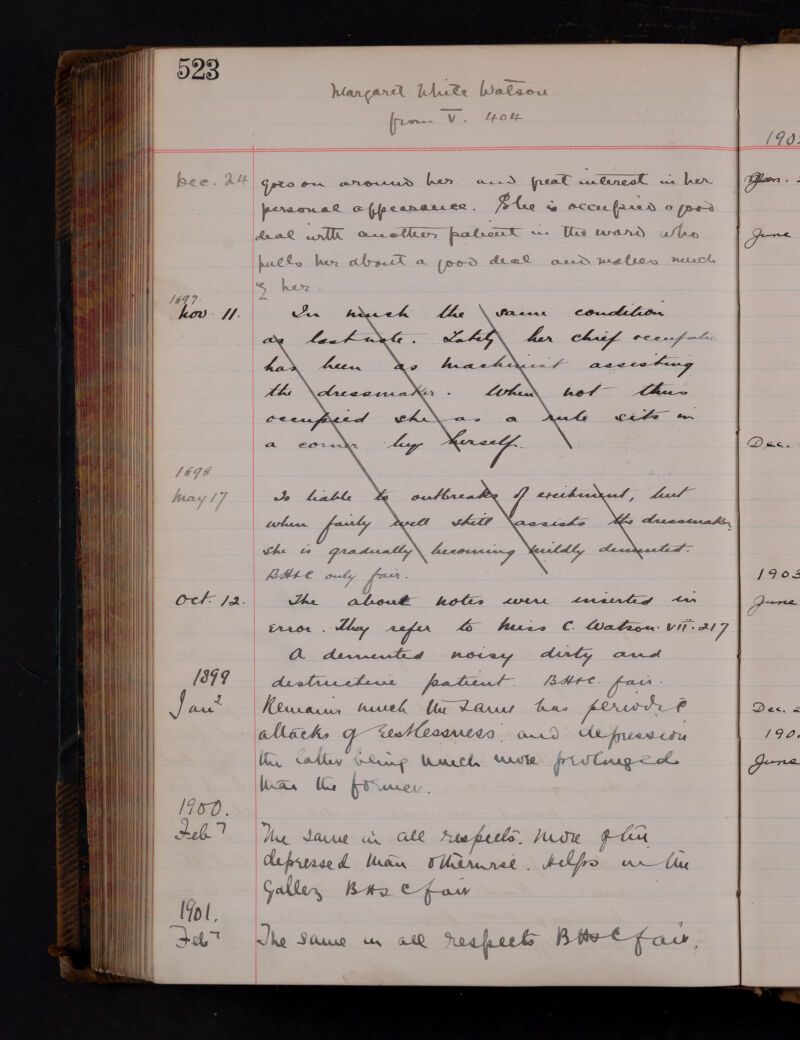 523
Margaret White Watson
from V. 404
Dec. 24 goes on around her and great interest in her
personal appearance. She is occupied a good
deal with another patient in the ward who
pulls her about a good deal and makes much
of her.
1897.
Nov. 11. In much the same condition
as last note. Lately her chief occupation
has been as machinist assisting
the dressmaker. When not thus
occupied she as a rule sits in
a corner by herself.
1898
May 17 Is liable to outbreaks of excitement, but
when fairly well still assists the dressmaker,
she is gradually becoming mildly demented.
BH&C only fair.
Oct. 12. The above notes were inserted in
error. They refer to Miss C. Watson. VII. 217
A demented noisy dirty and
destructive patient. BH&C. fair.
1899
Jan 2 Remains much the same has periodic
attacks of restlessness and depression
the latter being much more prolonged
than the former.
1900.
Feb 7 The same in all respects. More often
depressed than otherwise. Helps in the
Gallery BH&C fair
1901.
Feb 7 The same in all respects BH&C fair.
190
Jan.
June
Dec.
1903
June
Dec. 2
190
June